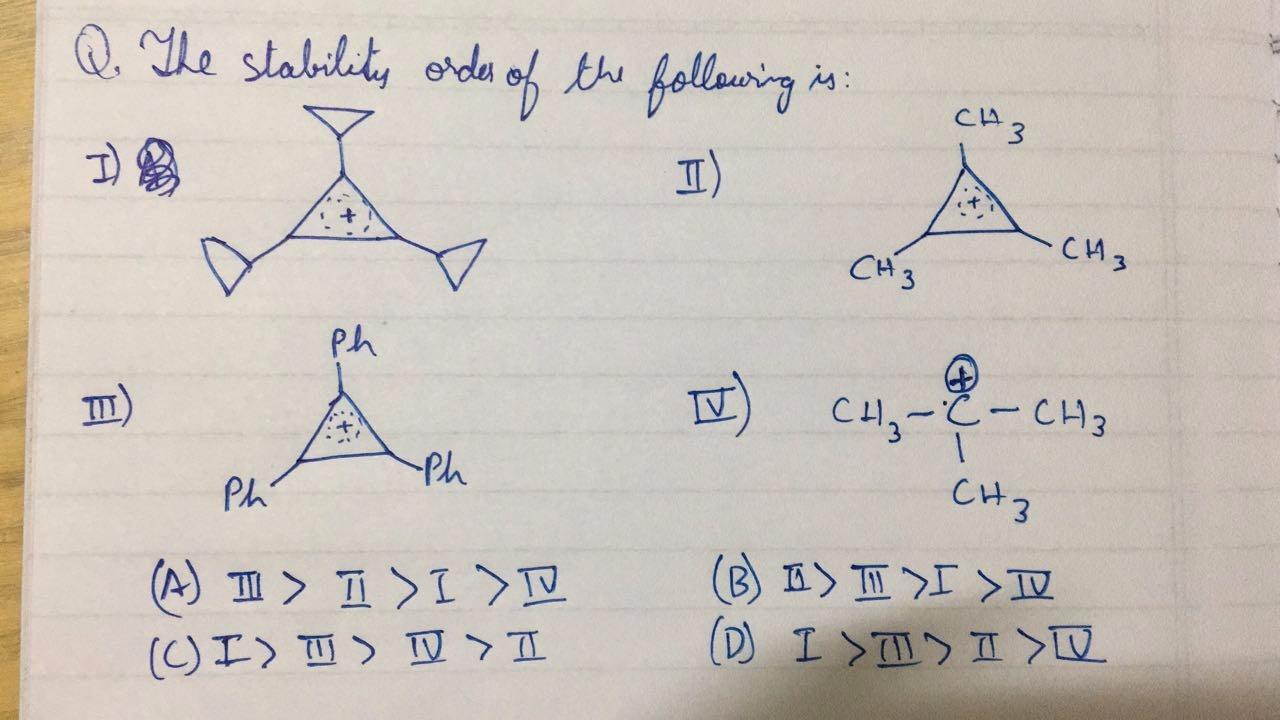 Q. The stability order of the following is:
I)
+
II)
CH3
+
CH3
CH3
III)
Ph
+
Ph
Ph
IV)
+
CH3 - C - CH3
CH3
(A) III > II > I > IV
(B) II > III > I > IV
(C) I > III > IV > II
(D) I > III > II > IV